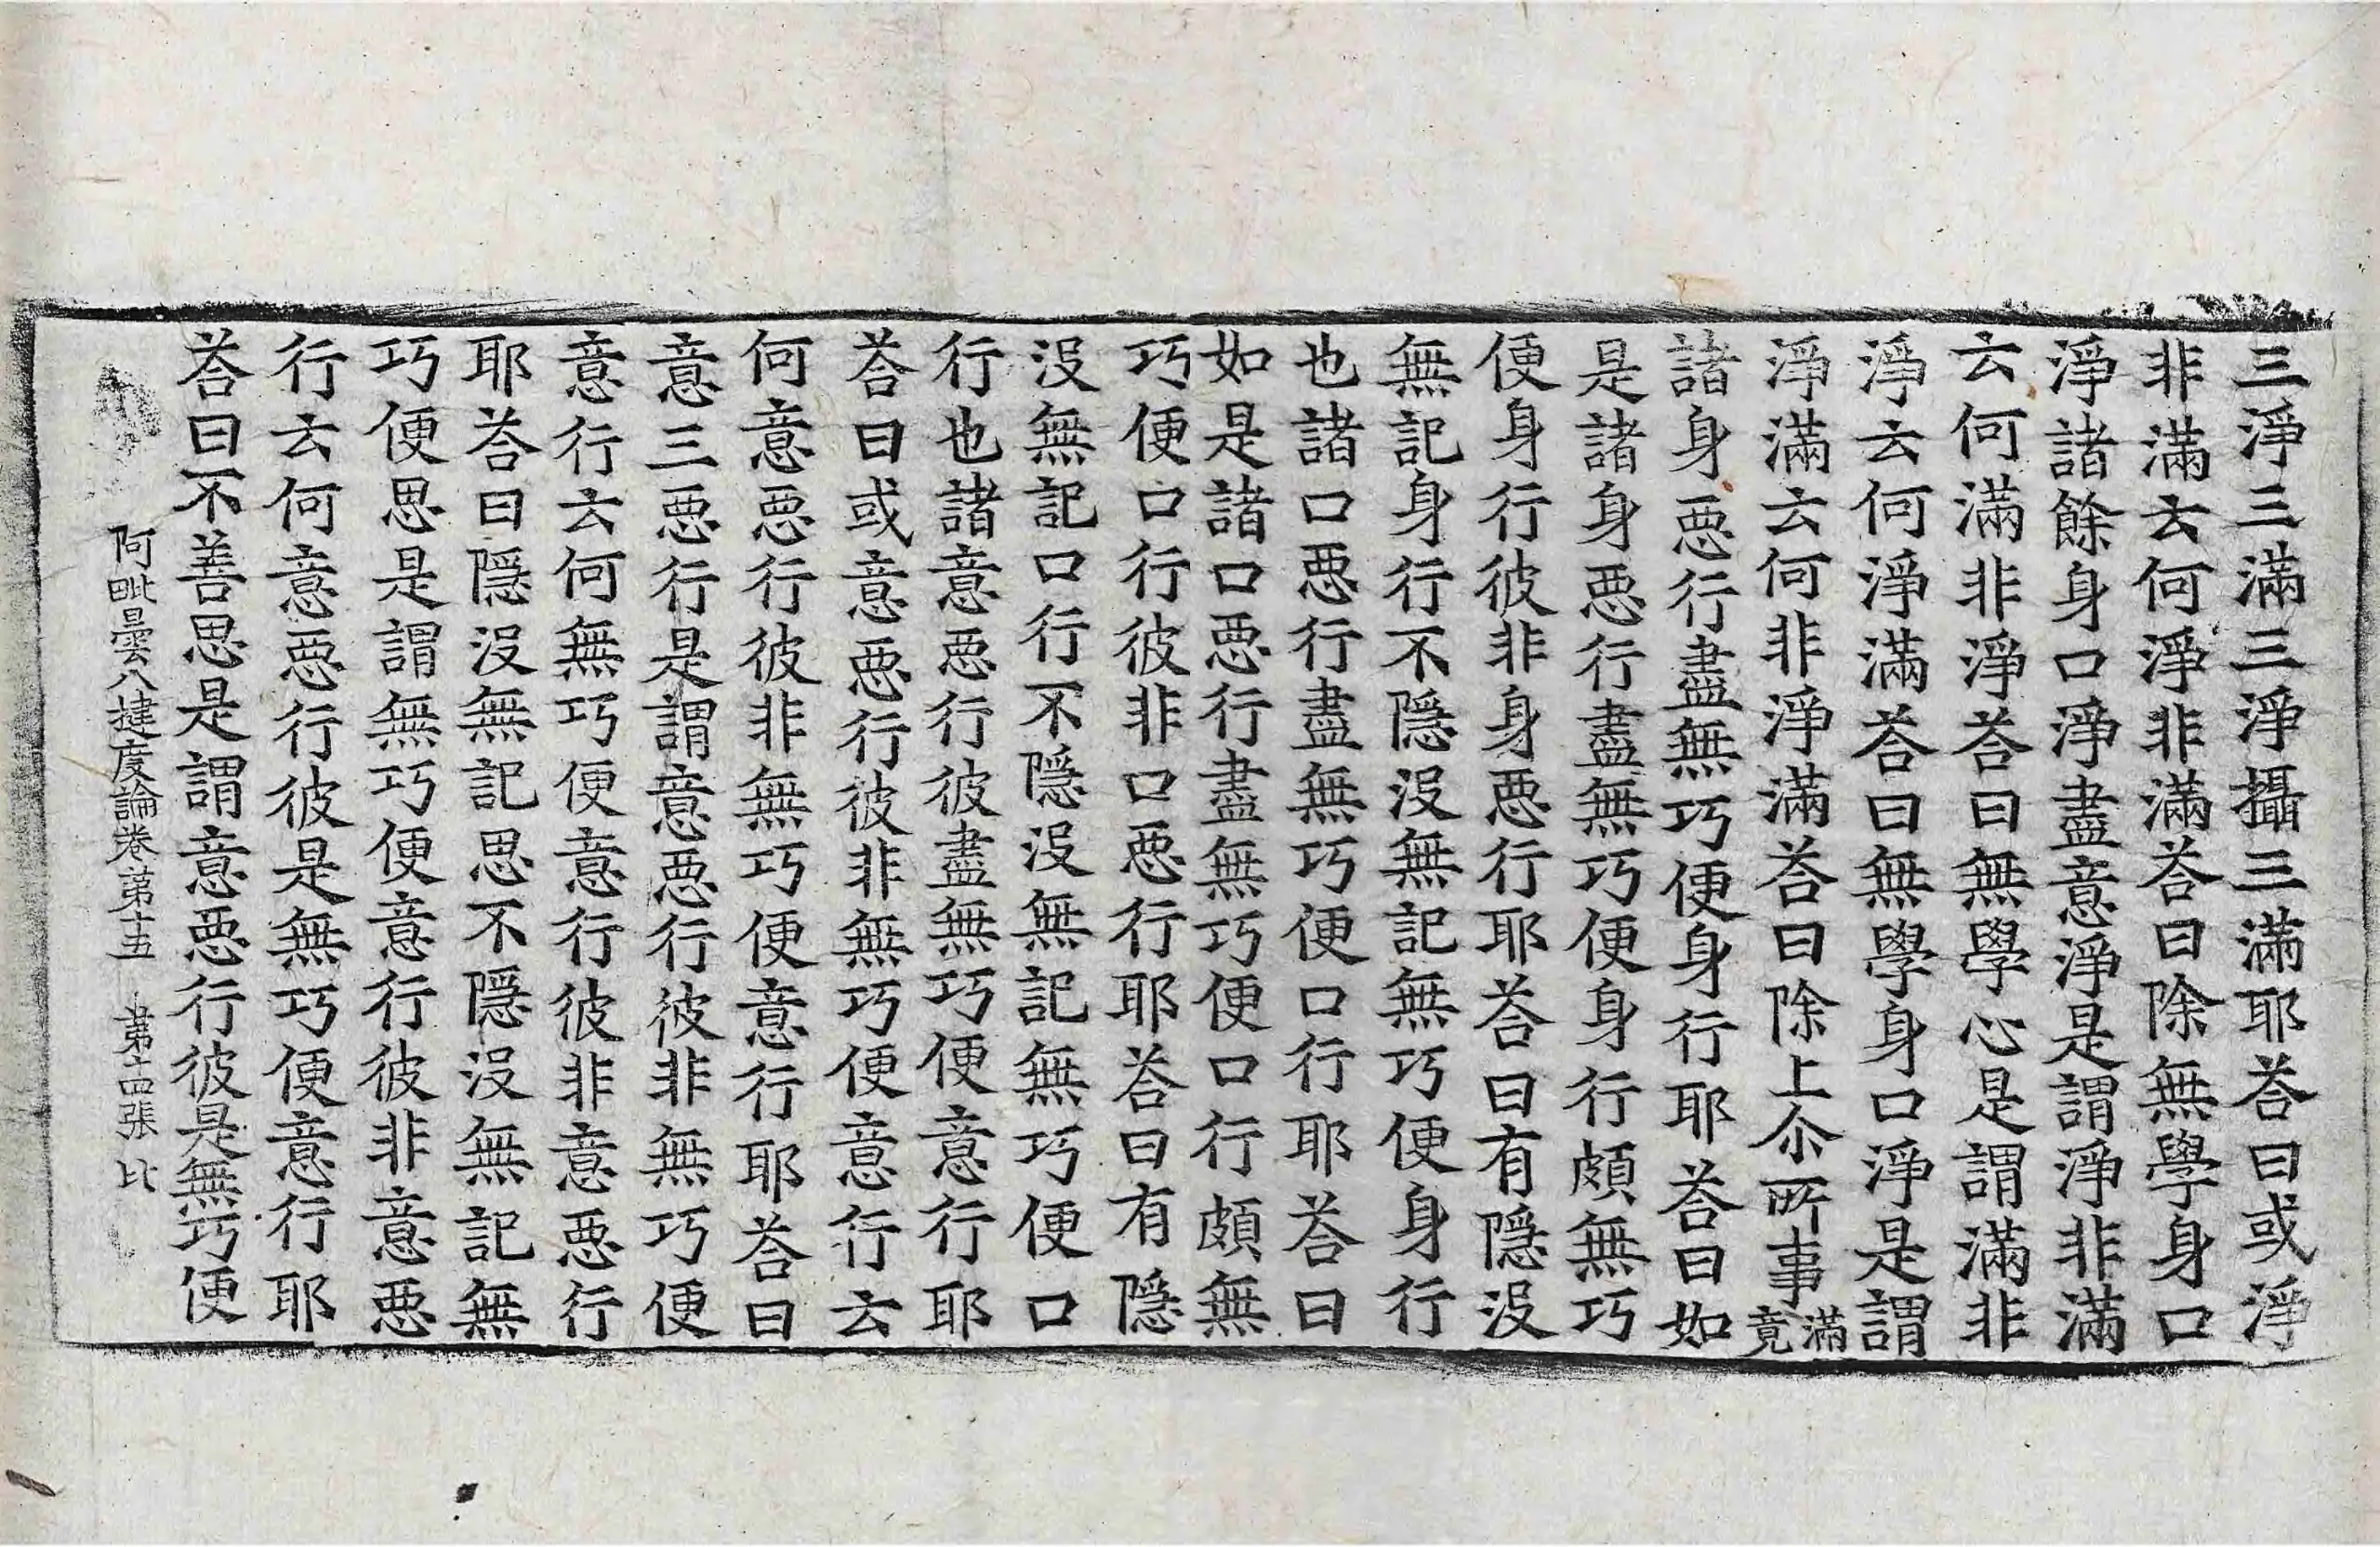 三淨三滿三淨攝三滿耶荅曰或淨
非滿云何淨非滿荅曰除無學身口
淨諸餘身口淨盡意淨是謂淨非滿
云何滿非淨荅曰無學心是謂滿非
淨云何淨滿荅曰無學身口淨是謂
淨滿云何非淨滿荅曰除上尒所事滿竟
諸身惡行盡無巧便身行耶荅曰如
是諸身惡行盡無巧便身行頗無巧
便身行彼非身惡行耶荅曰有隱沒
無記身行不隱沒無記無巧便身行
也諸口惡行盡無巧便口行耶荅曰
如是諸口惡行盡無巧便口行頗無
巧便口行彼非口惡行耶荅曰有隱
沒無記口行不隱沒無記無巧便口
行也諸意惡行彼盡無巧便意行耶
荅曰或意惡行彼非無巧便意行云
何意惡行彼非無巧便意行耶荅曰
意三惡行是謂意惡行彼非無巧便
意行云何無巧便意行彼非意惡行
耶荅曰隱沒無記思不隱沒無記無
巧便思是謂無巧便意行彼非意惡
行云何意惡行彼是無巧便意行耶
荅曰不善思是謂意惡行彼是無巧便
阿毗曇八揵度論卷第十五 第十四張 比